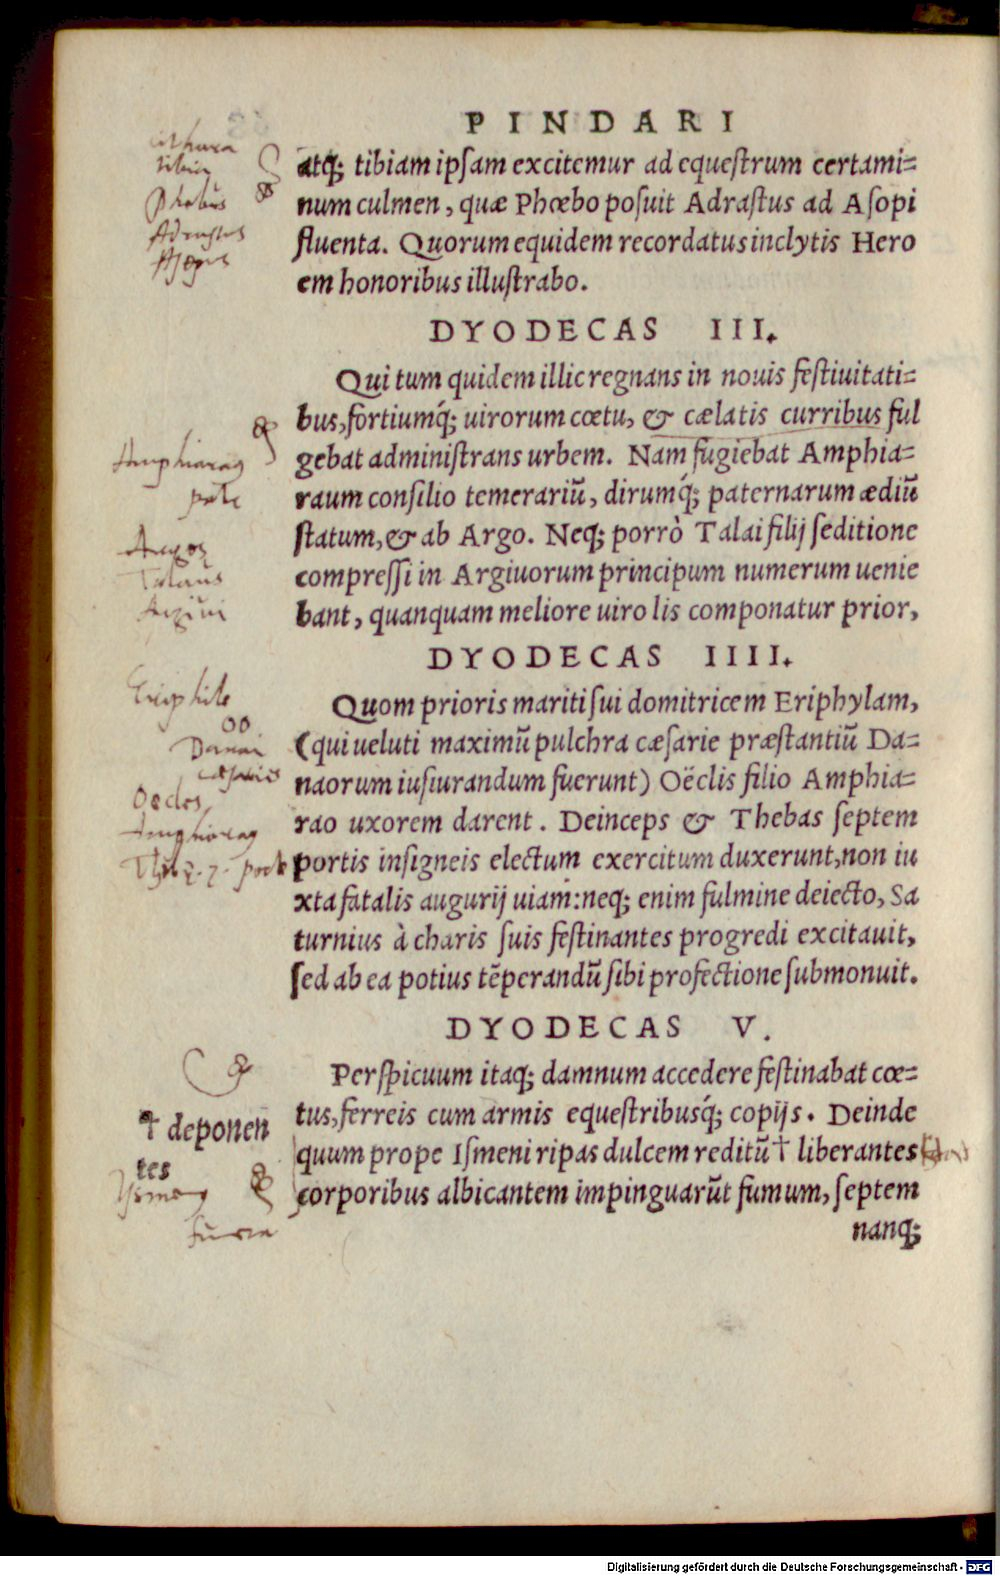 PINDARI
atq; tibiam ipſam excitemur ad equeſtrum certami=
num culmen, quæ Phœbo poſuit Adraſtus ad Aſopi
fluenta. Quorum equidem recordatus inclytis Hero
em honoribus illuſtrabo.
DYODECAS III.
Qui tum quidem illic regnans in nouis feſtiuitati=
bus, fortiumq́; uirorum cœtu, & cælatis curribus ful
gebat adminiſtrans urbem. Nam fugiebat Amphia=
raum conſilio temerariũ, dirumq́; paternarum ædiũ
ſtatum, & ab Argo. Neq; porrò Talai filij ſeditione
compreſſi in Argiuorum principum numerum uenie
bant, quanquam meliore uiro lis componatur prior,
DYODECAS IIII.
Quom prioris mariti ſui domitricem Eriphylam,
(qui ueluti maximũ pulchra cæſarie præſtantiũ Da=
naorum iuſiurandum fuerunt) Oëclis filio Amphia=
rao uxorem darent. Deinceps & Thebas ſeptem
portis inſigneis electum exercitum duxerunt, non iu
xta fatalis augurij uiam: neq; enim fulmine deiecto, Sa
turnius à charis ſuis feſtinantes progredi excitauit,
ſed ab ea potius tẽperandũ ſibi profectione ſubmonuit.
DYODECAS V.
Perſpicuum itaq; damnum accedere feſtinabat cœ=
tus, ferreis cum armis equeſtribusq́; copijs. Deinde
quum prope Iſmeni ripas dulcem reditũ † liberantes
corporibus albicantem impinguarũt fumum, ſeptem
nanq;
tibia
Phœbus
Adrastus
Asopus
Amphiaraus
Argos
Talaus
Argiui
Eriphile
Danai
cæsaries
Oecles
Amphiaraus
† deponen
tes
Ysmenus
Digitalisierung gefördert durch die Deutsche Forschungsgemeinschaft - DFG